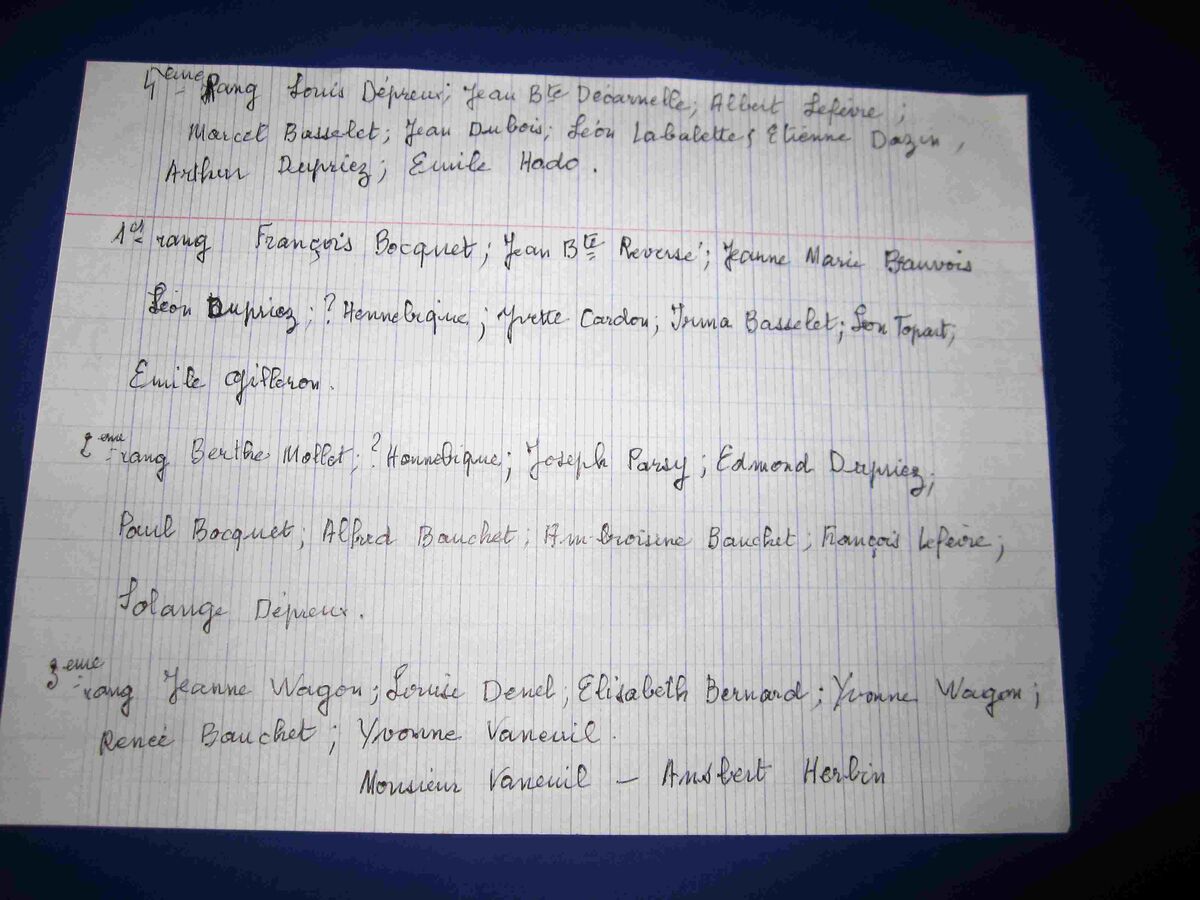 4eme Rang Louis Dépreux; Jean Bte Décarnelle; Albert Lefèvre;
Marcel Basselet; Jean Dubois; Léon Labalette; Etienne Dazin,
Arthur Dupriez; Emile Hado.
1er rang François Bocquet; Jean Bte Reversé; Jeanne Marie Beauvois
Léon Dupriez; ? Hennebique; Yvette Cardon; Irma Basselet; Léon Topart;
Emile
2eme rang Berthe Mollet; ? Hennebique; Joseph Parsy; Edmond Dupriez;
Paul Bocquet; Alfred Bauchet; Ambroisine Bauchet; François Lefèvre;
Solange Dépreux.
3eme rang Jeanne Wagon; Louise Denel; Elisabeth Bernard; Yvonne Wagon;
Renée Bauchet; Yvonne Vaneuil.
Monsieur Vaneuil – Ansbert Herbin